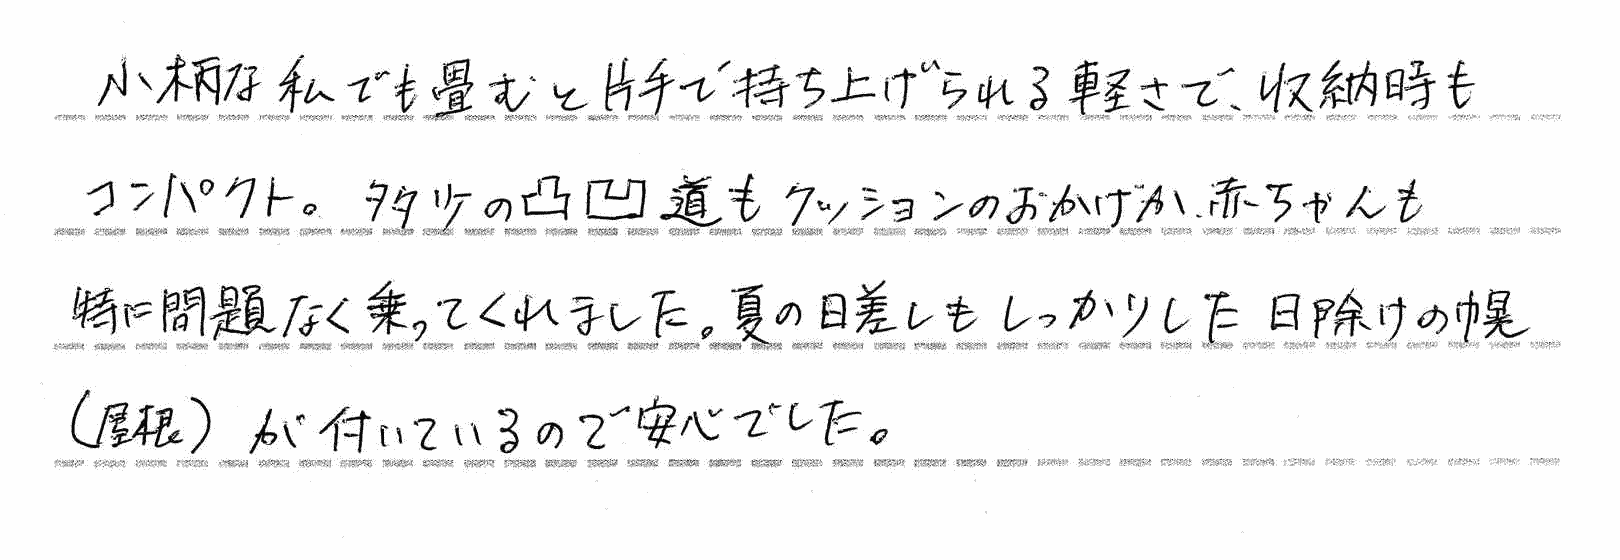 小柄な私でも畳むと片手で持ち上げられる軽さで、収納時も
コンパクト。多少の凸凹道もクッションのおかげか、赤ちゃんも
特に問題なく乗ってくれました。夏の日差しもしっかりした日除けの幌
(屋根)が付いているので安心でした。